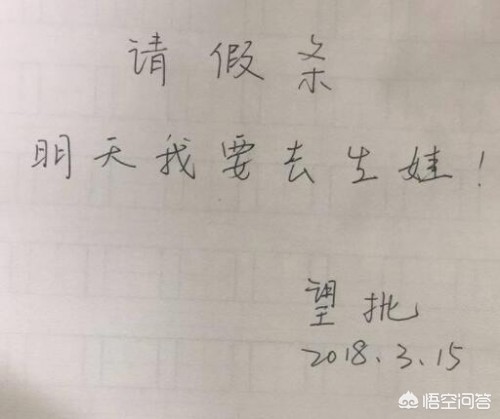 请假条
明天我要去生娃！
望批
2018.3.15
悟空问答